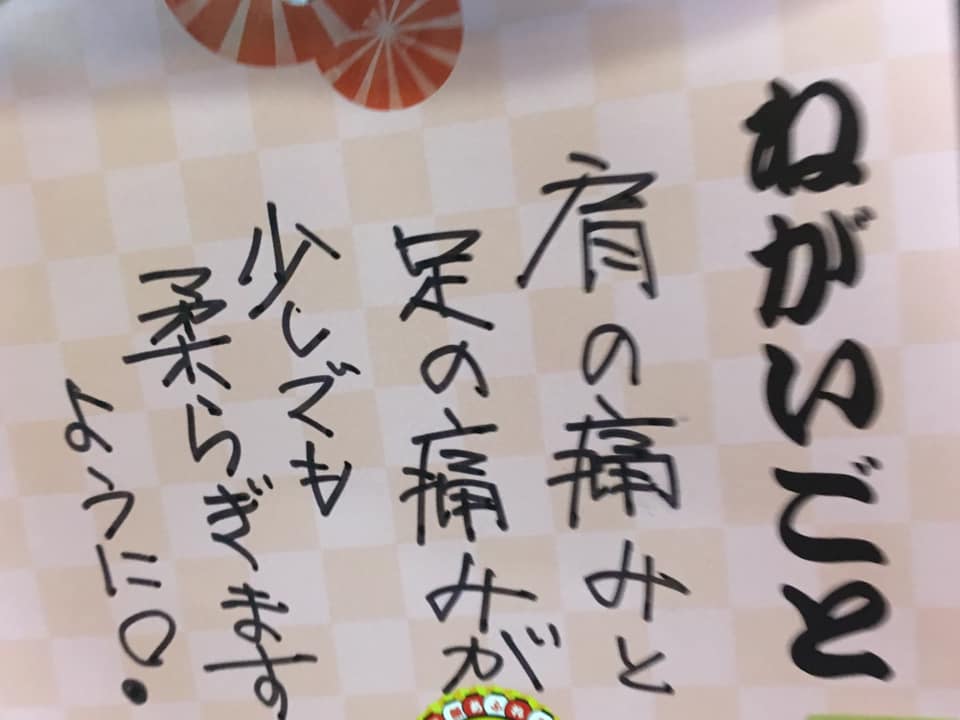 ねがいごと
肩の痛みと
足の痛みが
少しでも
柔らぎます
ように!